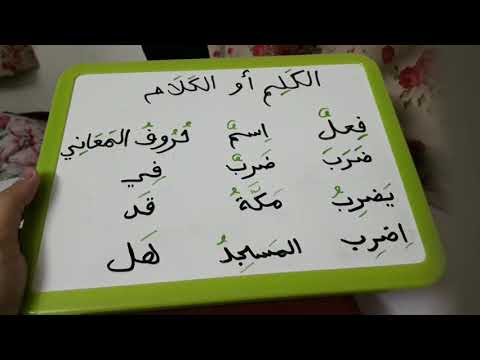 الكَلِم أو الكَلَام
فِعلٌ اِسمٌ حُرُوفُ المَعَانِي
ضَرَبَ ضَربٌ فِي
يَضرِبُ مَكَّةُ قَد
اِضرِب المَسجِدُ هَل